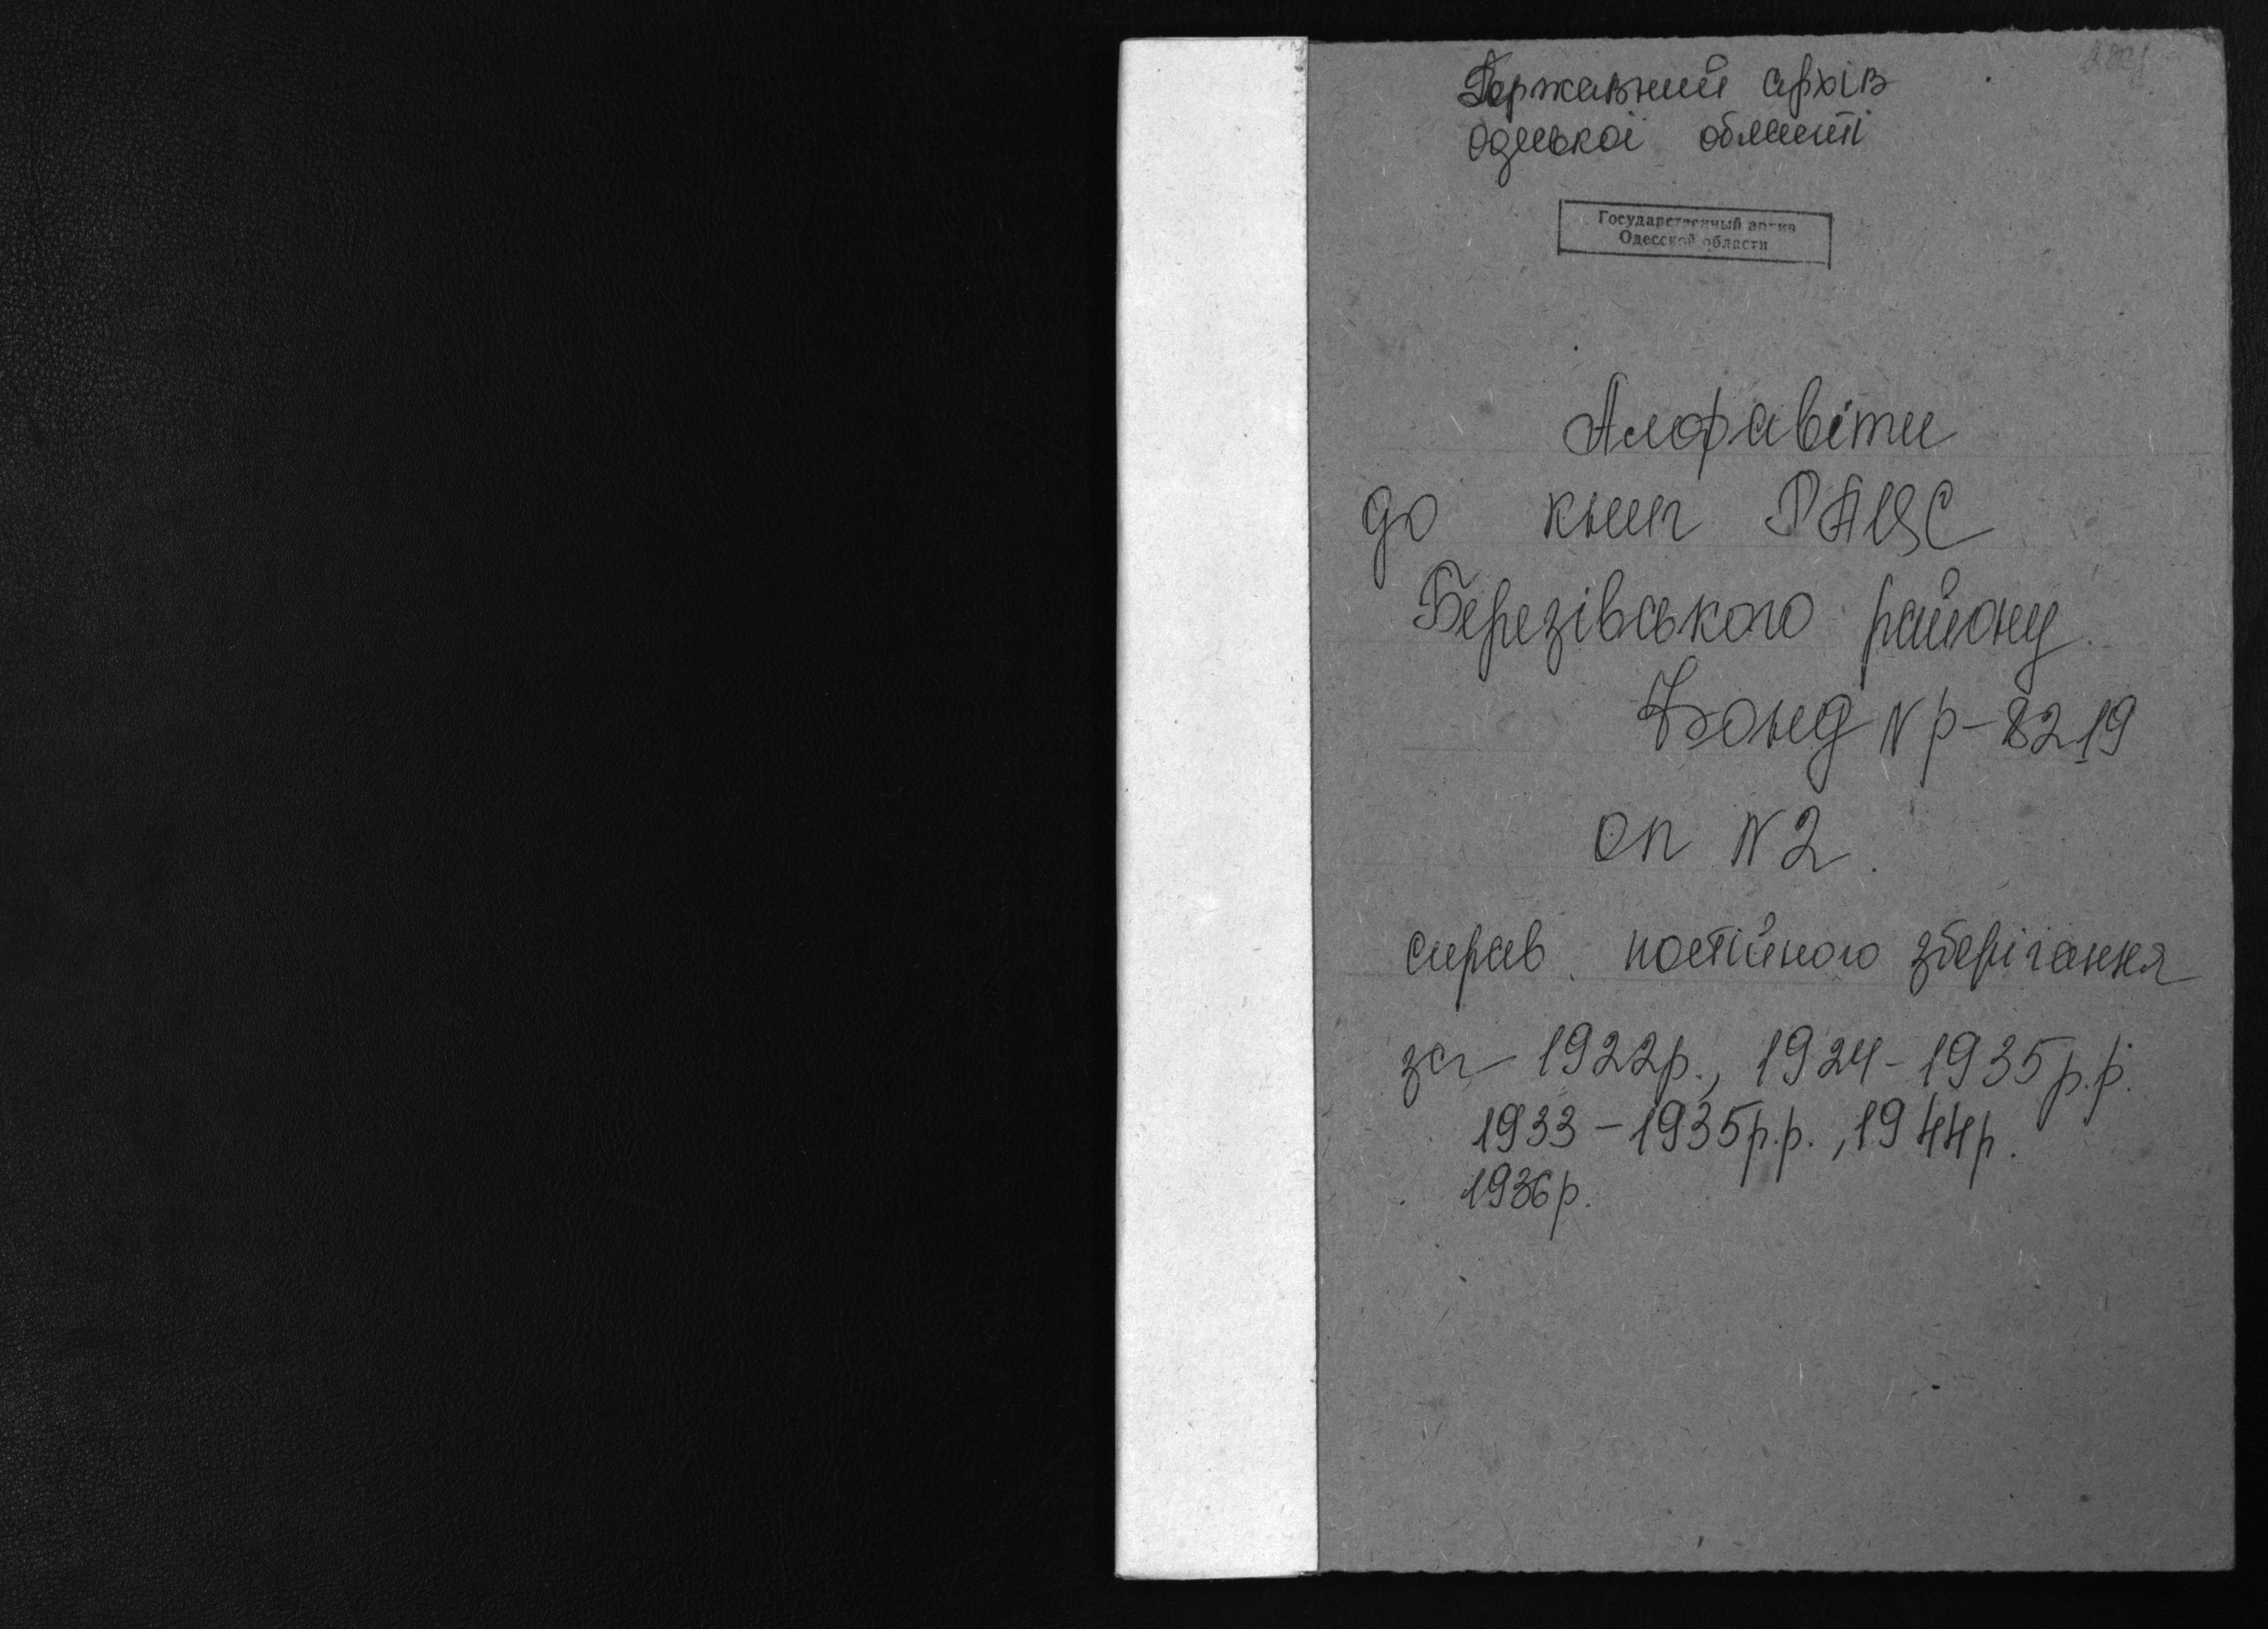 Державний архів
Одеської області
Государственный архив
Одесской области
Алфавіти
до книг РАЦС
Березівського району
Фонд N Р-8219
оп N 2.
справ постійного зберігання
за 1922р., 1924-1935р.р.
1933-1935р.р., 1944р.
1936р.